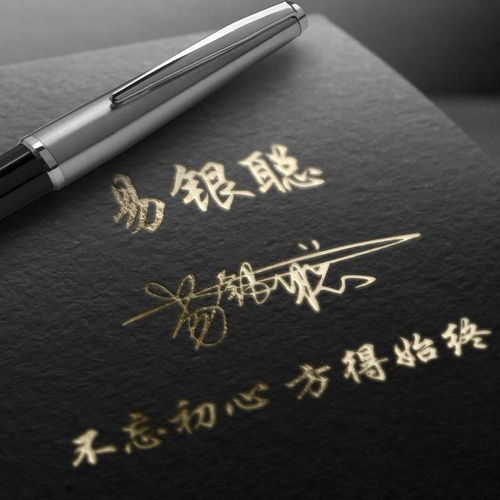 易银聪
易银聪
不忘初心 方得始终